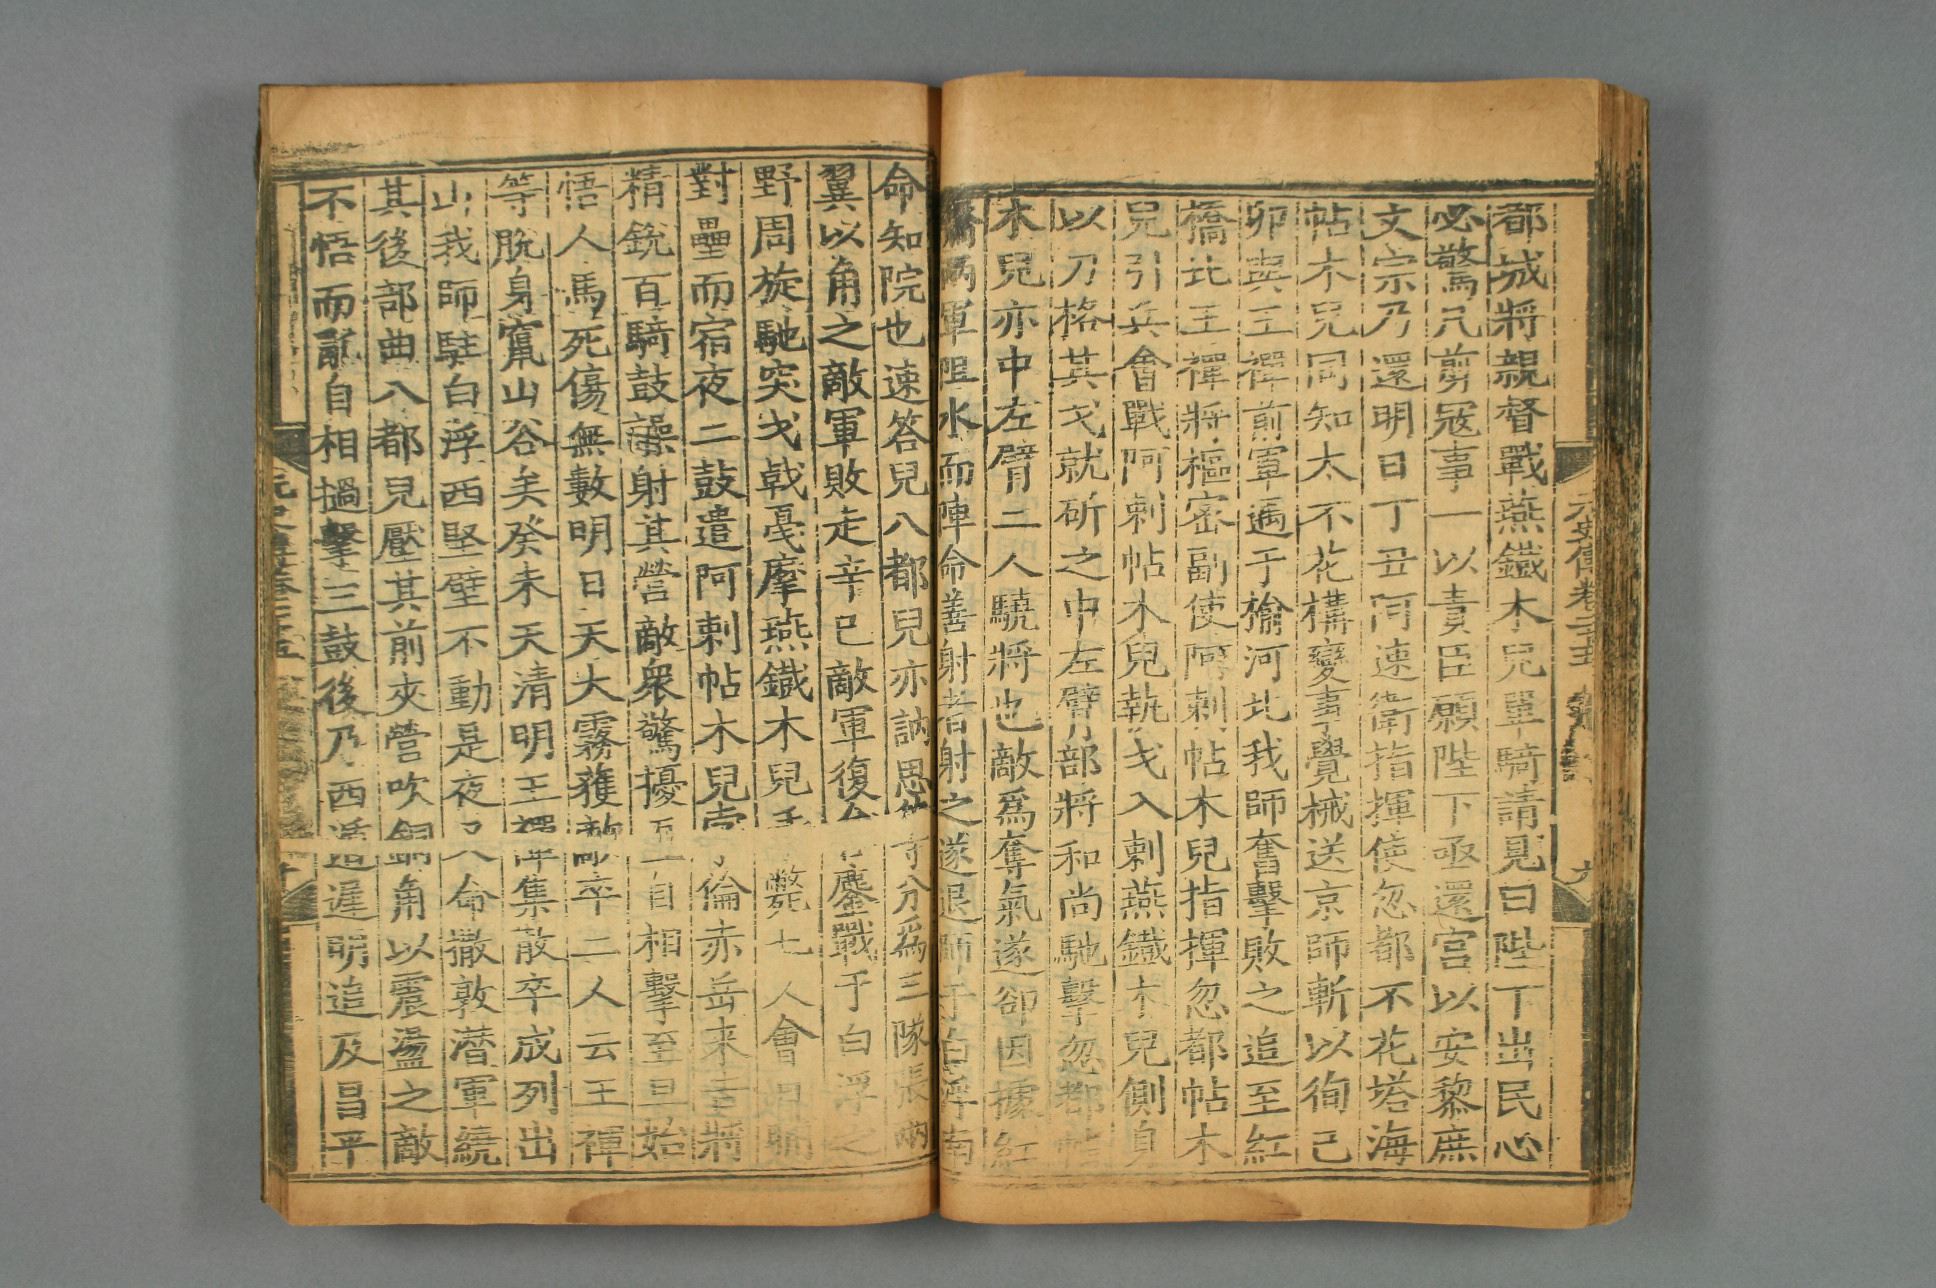 都城將親督戰燕鐵木兒單騎請見曰陛下出民心
必驚凡剪寇事一以責臣願陛下亟還宮以安黎庶
文宗乃還明日丁丑阿速衛指揮使忽都不花塔海
帖木兒同知太不花構變事覺械送京師斬以徇己
卯與王禪前軍遇于榆河北我師奮擊敗之追至紅
橋北王禪將樞密副使阿剌帖木兒指揮忽都帖木
兒引兵會戰阿剌帖木兒執戈入刺燕鐵木兒側身
以刀格其戈就斫之中左臂部將和尚馳擊忽都帖
木兒亦中左臂二人驍將也敵爲奪氣遂卻因據紅
橋兩軍阻水而陣命善射者射之遂退師于白浮南
命知院也速答兒八都兒亦訥思等分爲三隊張兩
翼以角之敵軍敗走辛巳敵軍復合鏖戰于白浮之
野周旋馳突戈戟戛摩燕鐵木兒手斃七人會日晡
對壘而宿夜二鼓遣阿剌帖木兒孛倫赤岳来吉將
精銳百騎鼓譟射其營敵衆驚擾互自相擊至旦始
悟人馬死傷無數明日天大霧獲敵卒二人云王禪
等脫身竄山谷矣癸未天清明王禪集散卒成列出
山我師駐白浮西堅壁不動是夜又命撒敦潛軍繞
其後部曲八都兒壓其前夾營吹銅角以震盪之敵
不悟而亂自相撾擊三鼓後乃西遁遲明追及昌平
元史傳卷二十五